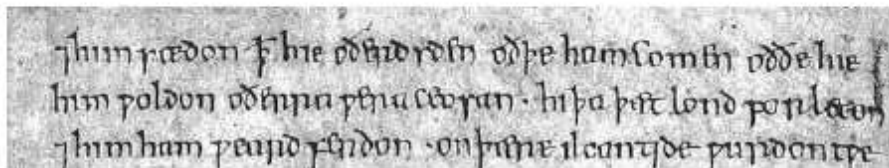 ⁊him sædon ꝥ hie oðer dyden oðþe ham comen oððe hie
him ƿoldon oðerra ƿera ceosan · hi þa þæt lond forleton
⁊him ham ƿeard ferdon · on þære ilcan tide ƿurdon tƿe